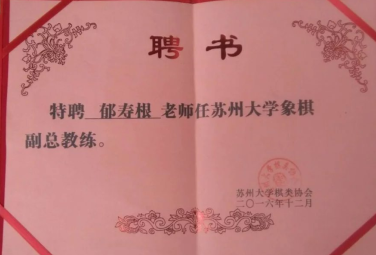 聘书
特聘 郁寿根 老师任苏州大学象棋
副总教练。
苏州大学棋类协会
二〇一六年十二月